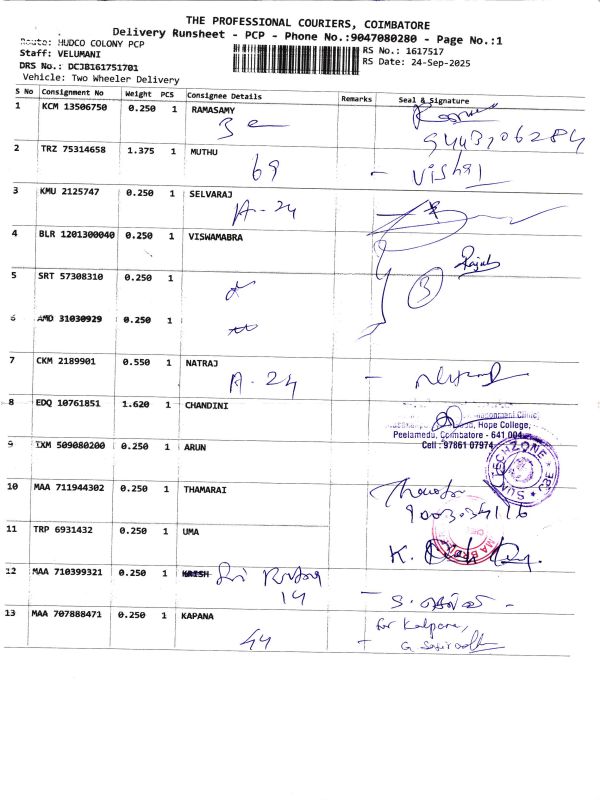 THE PROFESSIONAL COURIERS, COIMBATORE
Delivery Runsheet - PCP - Phone No.:9047080280 - Page No.:1
Route: HUDCO COLONY PCP
RS No.: 1617517
Staff: VELUMANI
RS Date: 24-Sep-2025
DRS No.: DCJB161751701
Vehicle: Two Wheeler Delivery
S No Consignment No Weight PCS Consignee Details Remarks Seal & Signature
1 KCM 13506750 0.250 1 RAMASAMY
2 TRZ 75314658 1.375 1 MUTHU
69 - Vishal
3 KMU 2125747 0.250 1 SELVARAJ
A-24
4 BLR 1201300040 0.250 1 VISWAMABRA
5 SRT 57308310 0.250 1
3
6 AMD 31030929 0.250 1
7 CKM 2189901 0.550 1 NATRAJ
A-24
8 EDQ 10761851 1.620 1 CHANDINI
Hope College,
Peelamedu, Coimbatore - 641 004
Cell : 97861 07974
9 IXM 509080200 0.250 1 ARUN
SUN TECHZONE CBE
10 MAA 711944302 0.250 1 THAMARAI
11 TRP 6931432 0.250 1 UMA
K.
12 MAA 710399321 0.250 1 KRISH
14
13 MAA 707888471 0.250 1 KAPANA
44
for Kalpana,